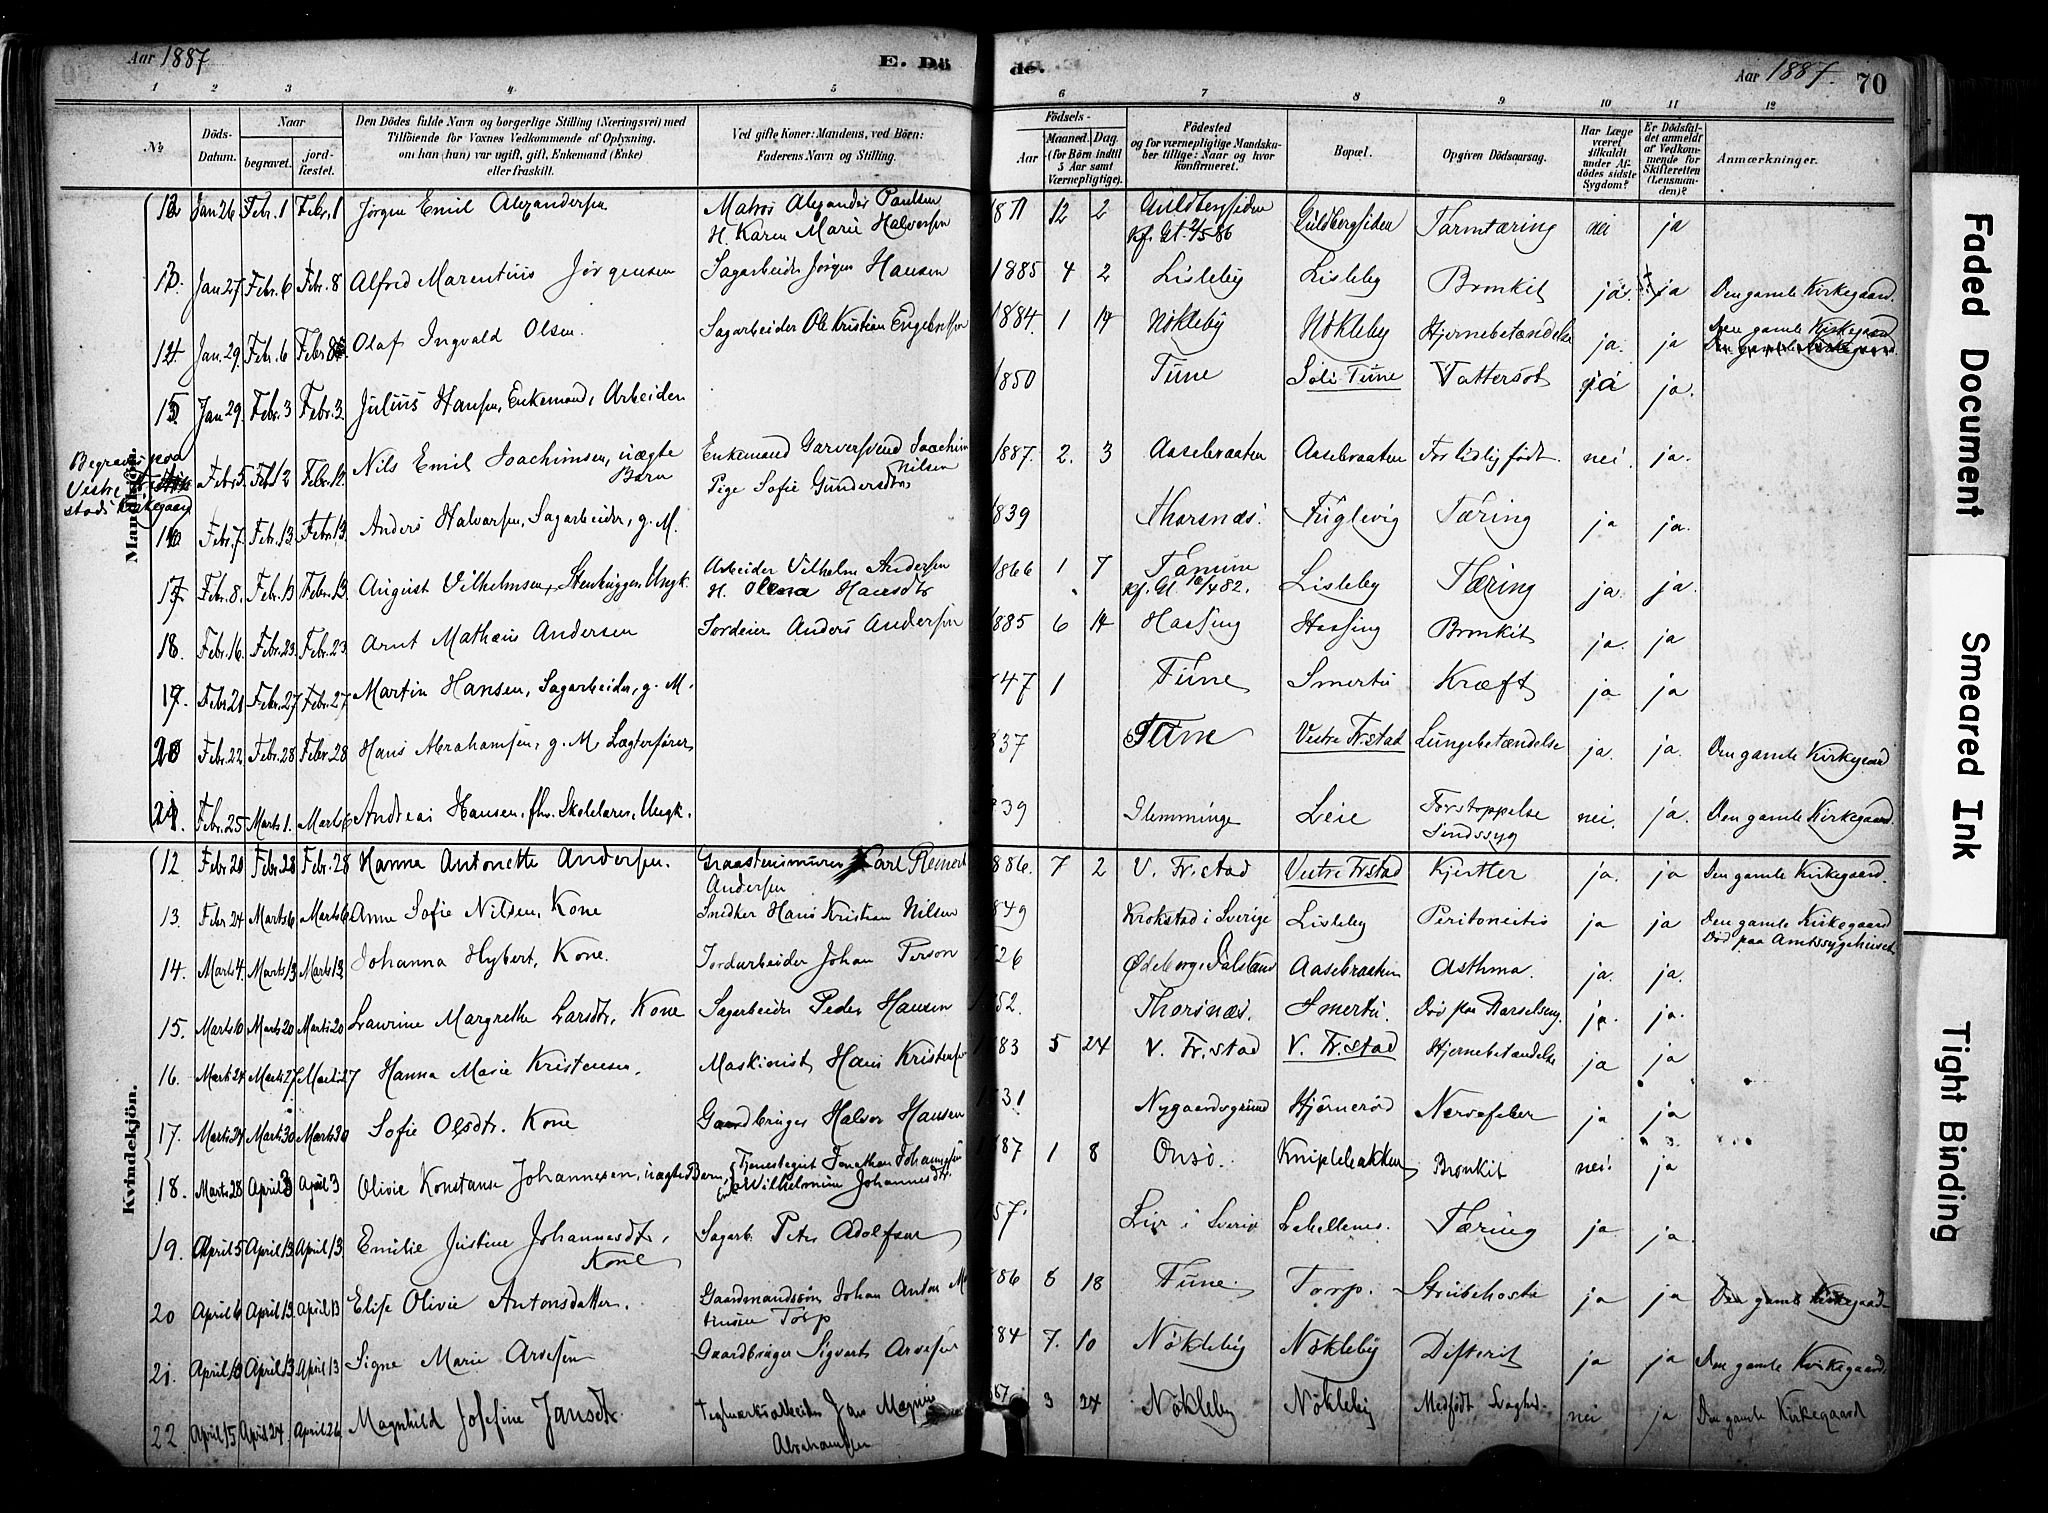 Aar 1887
E. Dö
de.
Aar 1887. 70
1 2 3 4 5 6 7 8 9 10 11 12
No
Döds-Datum.
Naar
begravet.
jordfæstet.
Den Dödes fulde Navn og borgerlige Stilling (Næringsvei) med
Tilföiende for Voxnes Vedkommende af Oplysning,
om han (hun) var ugift, gift, Enkemand (Enke)
eller fraskilt.
Ved gifte Koner: Mandens, ved Börn:
Faderens Navn og Stilling.
Födsels-
Aar
Maaned. Dag.
(for Börn indtil
5 Aar samt
Værnepligtige).
Födested
og for værnepligtige Mandskaber tillige: Naar og hvor
konfirmeret.
Bopæl.
Opgiven Dödsaarsag.
Har Læge været tilkaldt under Afdödes sidste Sygdom?
Er Dödsfaldet anmeldt af Vedkommende for Skifteretten (Lensmanden)?
Anmærkninger.
Mandkjön.
12 Jan 26. Febr. 1 Febr. 1 Jörgen Emil Alexandersen Matros Alexander Paulsen 1871 12 2 Guldbergsiden Guldbergsiden Tarmtæring nei ja
H. Karen Marie Halvorsen kf. Gl. 2/5 86
13. Jan 27. Febr. 6 Febr. 8 Alfred Marentius Jörgensen Sagarbeider Jörgen Hansen 1885 4 2 Lisleby Lisleby Bronkit ja. ja Den gamle Kirkegaard.
14 Jan. 29. Febr. 6 Febr. 8 Olaf Ingvald Olsen. Sagarbeider Ole Kristian Engebretsen 1884. 1 14 Nökleby Nökleby Hjernebetændelse ja. ja Den gamle Kirkegaard
15. Jan 29. Febr. 3 Febr. 3. Julius Hansen, Enkemand, Arbeider 1850 Tune Soli Tune Vattersot ja ja.
Begravet paa
Vestre Fredrikstads Kirkegaard
Febr. 5. Feb 12 Febr. 12. Nils Emil Joachimsen, uægte Barn Enkemand Garversvend Joachim Nilsen 1887. 2. 3 Aasebraaten Aasebraaten For tidlig födt. nei. ja.
Pige Sofie Gundersdtr
16 Febr. 7. Febr. 13. Febr. 13. Anders Halvorsen, Sagarbeider, g. M. 1839 Thorsnæs. Fuglevig Tæring ja ja.
17 Febr. 8. Febr. 13 Febr. 13. August Vilhelmsen, Stenhugger, Ungk. Arbeider Vilhelm Andersen 1866 1 7 Tanum Lisleby Tæring ja. ja.
H. Olena Hansdtr kf. Gl. 16/4 82.
18. Febr. 16. Febr. 23. Febr. 23. Arnt Mathæus Andersen Jordeier Anders Andersen 1885 6 14 Hassing Hassing Bronkit ja. ja
19. Febr 21 Febr. 27 Febr. 27 Martin Hansen, Sagarbeider, g. M. 47 1 Tune Smertu Kræft ja ja
20 Febr. 22 Febr. 28 Febr. 28 Hans Abrahamsen, g. M. Lægterförer 37 Tune Vestre Fr.stad Lungebetændelse ja. ja. Den gamle Kirkegaard
21. Febr. 25 Marts 1. Marts 6 Andreas Hansen, fhv. Skolelærer, Ungk. 39 Glemminge Leie Forstoppelse Sindssyg nei. ja. Den gamle Kirkegaard.
Kvindekjön.
12 Febr 20 Febr. 28 Febr. 28 Hanna Antonette Andersen. Graastensmurer Karl Reinert Andersen 886. 7 2 V. Fr.stad Vestre Fr.stad Kjertler ja. ja Den gamle Kirkegaard.
13. Febr 24 Marts 6 Marts 6 Anne Sofie Nilsen, Kone Snedker Hans Kristian Nilsen 849 Krokstad i Sverige Lisleby Peritoneitis ja ja Den gamle Kirkegaard
Död paa Amtssygehuset
14. Marts 4. Marts 13 Marts 13. Johanna Hybert, Kone. Jordarbeider Johan Person 26 Ödeborg i Dalsland Aasebraaten Asthma. ja. ja.
15. Marts 10 Marts 20 Marts 20 Laurine Margrethe Larsdtr, Kone Sagarbeider Peder Hansen 52. Thorsnæs. Smertu. Död paa Barselseng. ja. ja.
16. Marts 24 Marts 27 Marts 27 Hanna Marie Kristensen. Maskinist Hans Kristensen 83 5 24 V. Fr.stad V. Fr.stad Hjernebetændelse ja ja
17. Marts 24 Marts 30 Marts 30 Sofie Olsdtr. Kone Gaardbruger Halvor Hansen 31 Nygaardsgrund Hjörneröd Nervefeber ja ja
18. Marts 28 April 3 April 3 Olivie Konstanse Johannesen, uægte Barn, Tjenestegut Jonathan Johannesen 87 1 8 Onsö. Kniplebakken Bronkit nei. ja
Vilhelmine Johannesdtr.
19. April 5 April 13 April 13 Emilie Justine Johannesdtr, Kone Sagarb. Peter Adolfsen 57. i Sverige Labellenes. Tæring ja ja.
20 April 6 April 13 April 13 Elise Olivie Antonsdatter. Gaardmandssön Johan Anton 86 8 18 Tune. Torp. Strubehoste ja ja Den gamle Kirkegaard
Torp
21. April 10 April 13 April 13 Signe Marie Arvesen Gaardbruger Sigvart Arvesen 84 7. 10 Nökleby Nökleby Difterit ja ja Den gamle Kirkegaard.
22. April 15 April 24. April 26 Magnhild Josefine Jansdtr. Teglværksarbeider Jan Magnus Abrahamsen 87 3 24 Nökleby Nökleby Medfödt Svaghed. nei ja Den gamle Kirkegaard
Faded Document
Smeared Ink
Tight Binding